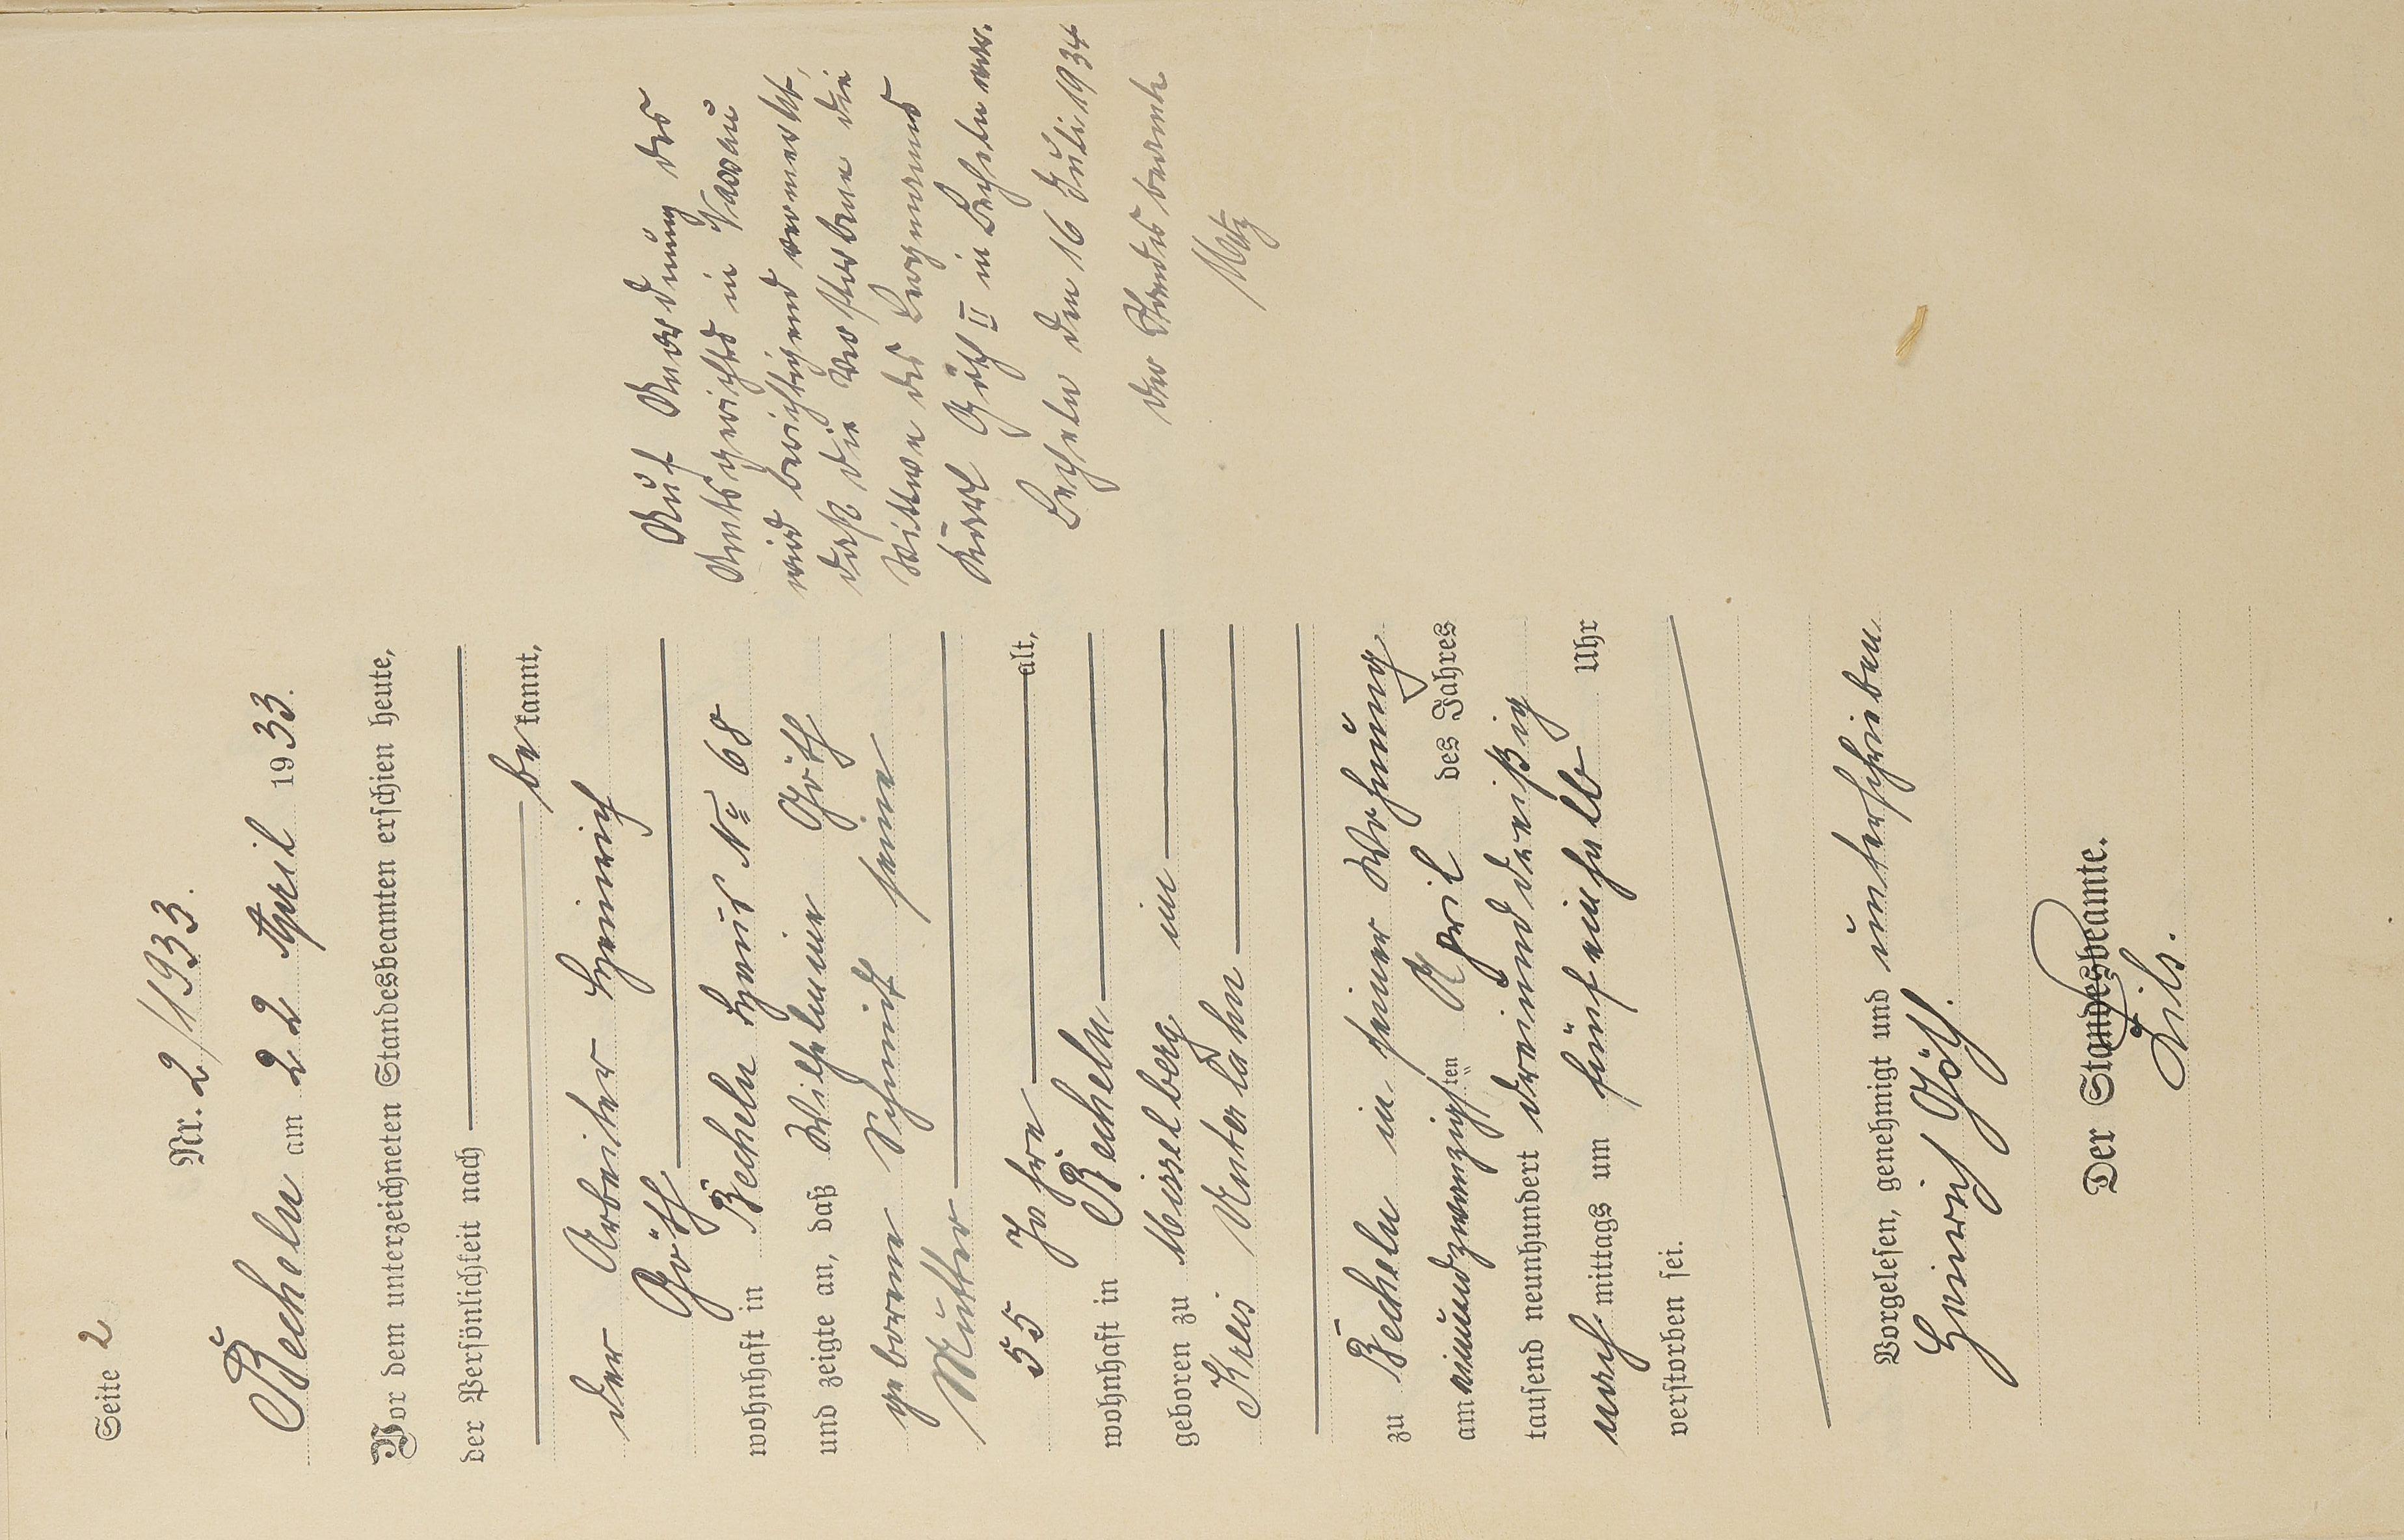 Seite 2
Nr. 2/1933.
Becheln am 22 April 1933.
Vor dem unterzeichneten Standesbeamten erschien heute,
der Persönlichkeit nach
bekannt,
der Arbeiter Heinrich
Göth
wohnhaft in Becheln Haus No 68
und zeigte an, daß Wilhelmine Göth
geborene Schmidt seine
Mutter
55 Jahre alt,
wohnhaft in Becheln
geboren zu Misselberg im
Kreis Unterlahn
zu Becheln in seiner Wohnung
am einundzwanzigsten April des Jahres
tausend neunhundert dreiunddreißig
nach mittags um fünfeinhalb Uhr
verstorben sei.
Vorgelesen, genehmigt und unterschrieben
Heinrich Göth.
Der Standesbeamte.
Zils.
Auf Anordnung des
Amtsgerichts in Nassau
wird berichtigend vermerkt,
daß die Verstorbene die
Witwe des Bergmanns
Karl Göth II in Becheln war.
Becheln den 16 Juli 1934
Der Standesbeamte
Metz